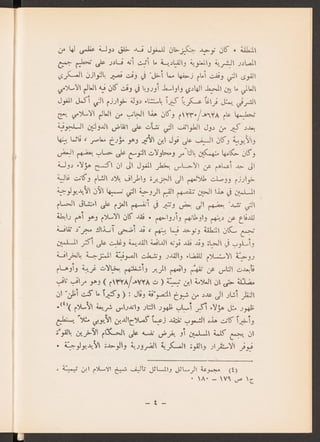 المنطقة . كان توحيد جنكيزخان للمغول قد خلق دولة عظمى لها من
المصادر البشرية والمعنوية والقيادية ما أثبت أنه قادر على تحطيم جميع
القوى التي وقفت أمام زحفها مما أخل في وقت قصير بالتوازن العسكري
العالمي ما بين المحيط الهادي وأواسط أوروبا في وقت كان فيه العالم الاسلامي
الشرقي يمثل فراغاً عسكرياً كبيراً باستثناء دولة خوارزم التي أكمل المغول
تحطيمها عام ٦٢٨هـ/١٢٣٠م وكان هذا الجانب من العالم الاسلامي يعج
بعدد كبير من دول الطوائف التي نشأت على انقاض الدولتين السلجوقية
والأيوبية وكان السيف على قول ابن الأثير وهو مؤرخ معاصر ، قائما بينها
وكان حكامها منهمكين بالتآمر ومحاولات التوسع على حساب بعضهم البعض
الى حد أعماهم عن الاحساس بخطر المغول الى ان اكتسح هؤلاء دولة
خوارزم ووصلت طلائعهم الى الجزيرة واطراف بلاد الشام وكانت غالبية
المسلمين في هذا الحين تنقصهم القيم الروحية التي نسميها الآن الأيديولوجية
التي تشد بعضهم الى بعض وتثير في أنفسهم العزم على امتشاق الحسام
للدفاع عن دينهم واوطانهم وأرواحهم . فلقد كان الاسلام وهو أهم رابطة
تجمع سكان المنطقة وتوحد فيما بينهم ، قد أضحى آنذاك مجرد ثقافة
وأسلوب في الحياة وقد فقد قوته الدافعة القديمة وغلبت على أكثر المسلمين
روحية الاستسلام للقضاء والقدر وتفشت الصوفية الممتزجة بالخرافة
فأبعدت الناس عن تفهم واقعهم المرير وأشغلتهم بخيالات غريبة وأوهام
مضللة حتى ان العلامة ابن تيمية (ت ٧٢٨هـ/١٣٢٨م) وهو مراقب ثاقب
النظر أشار الى عدد من شيوخ المتصوفة وقال : (وكثيراً ما كنت أظن ان
ظهور مثل هؤلاء أكبر أسباب ظهور التتار واندراس شريعة الاسلام)(٤) .
وأخيراً كانت هذه الشعوب تفتقد زعيماً كصلاح الدين الأيوبي مثلاً يستطيع
ان يجمع كلمة المسلمين أو يفرض نفسه على الحكام الآخرين بالقوة
فيوفر الاستقرار والقوة العسكرية الضرورية والوحدة الأيديولوجية .
(٤) مجموعة الرسائل والمسائل تأليف شيخ الاسلام ابن تيمية .
ج١ ص ١٧٩ - ١٨٠ .
- ٤ -